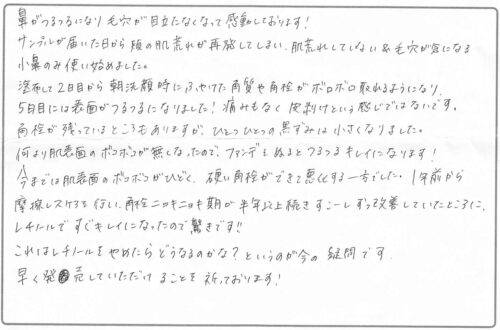 鼻がつるつるになり毛穴が目立たなくなって感動しております!
サンプルが届いた日から頬の肌荒れが再発してしまい、肌荒れしていない&毛穴が気になる
小鼻のみ使い始めました。
塗布して2日目から朝洗顔時にふやけた角質や角栓がボロボロ取れるようになり、
5日目には表面がつるつるになりました!痛みもなく皮剥けという感じではないです。
角栓が残っているところもありますが、ひとつひとつの黒ずみは小さくなりました。
何より肌表面のボコボコが無くなったので、ファンデをぬるとつるつるキレイになります!
今までは肌表面のボコボコがひどく、硬い角栓ができて悪化する一方でした。1年前から
摩擦レスケアを行い、角栓ニョキニョキ期が半年以上続きすこーしずつ改善していたところに、
レチノールですぐキレイになったので驚きです!!
これはレチノールをやめたらどうなるのかな?というのが今の疑問です。
早く発売していただけることを祈っております!